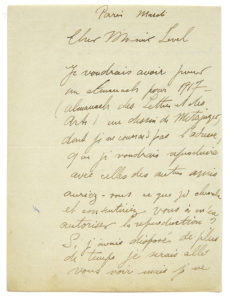 Paris Mardi
Cher Monsieur
Je voudrais avoir pour
un almanach pour 1917
(almanach des Lettres et des
Arts) un dessin de
dont je ne connais pas l'adresse
que je voudrais reproduire
avec celles des autres amis
auriez-vous ce que je cherche
et consentiriez vous à
autoriser la reproduction?
Si j'avais disposé de plus
de temps je serais allé
vous voir mais je ne